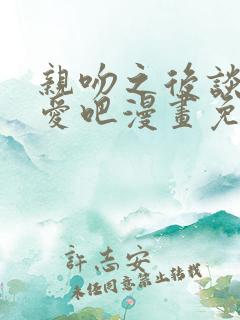 親吻之後談
愛吧漫畫免
許志安
未經同意禁止轉載